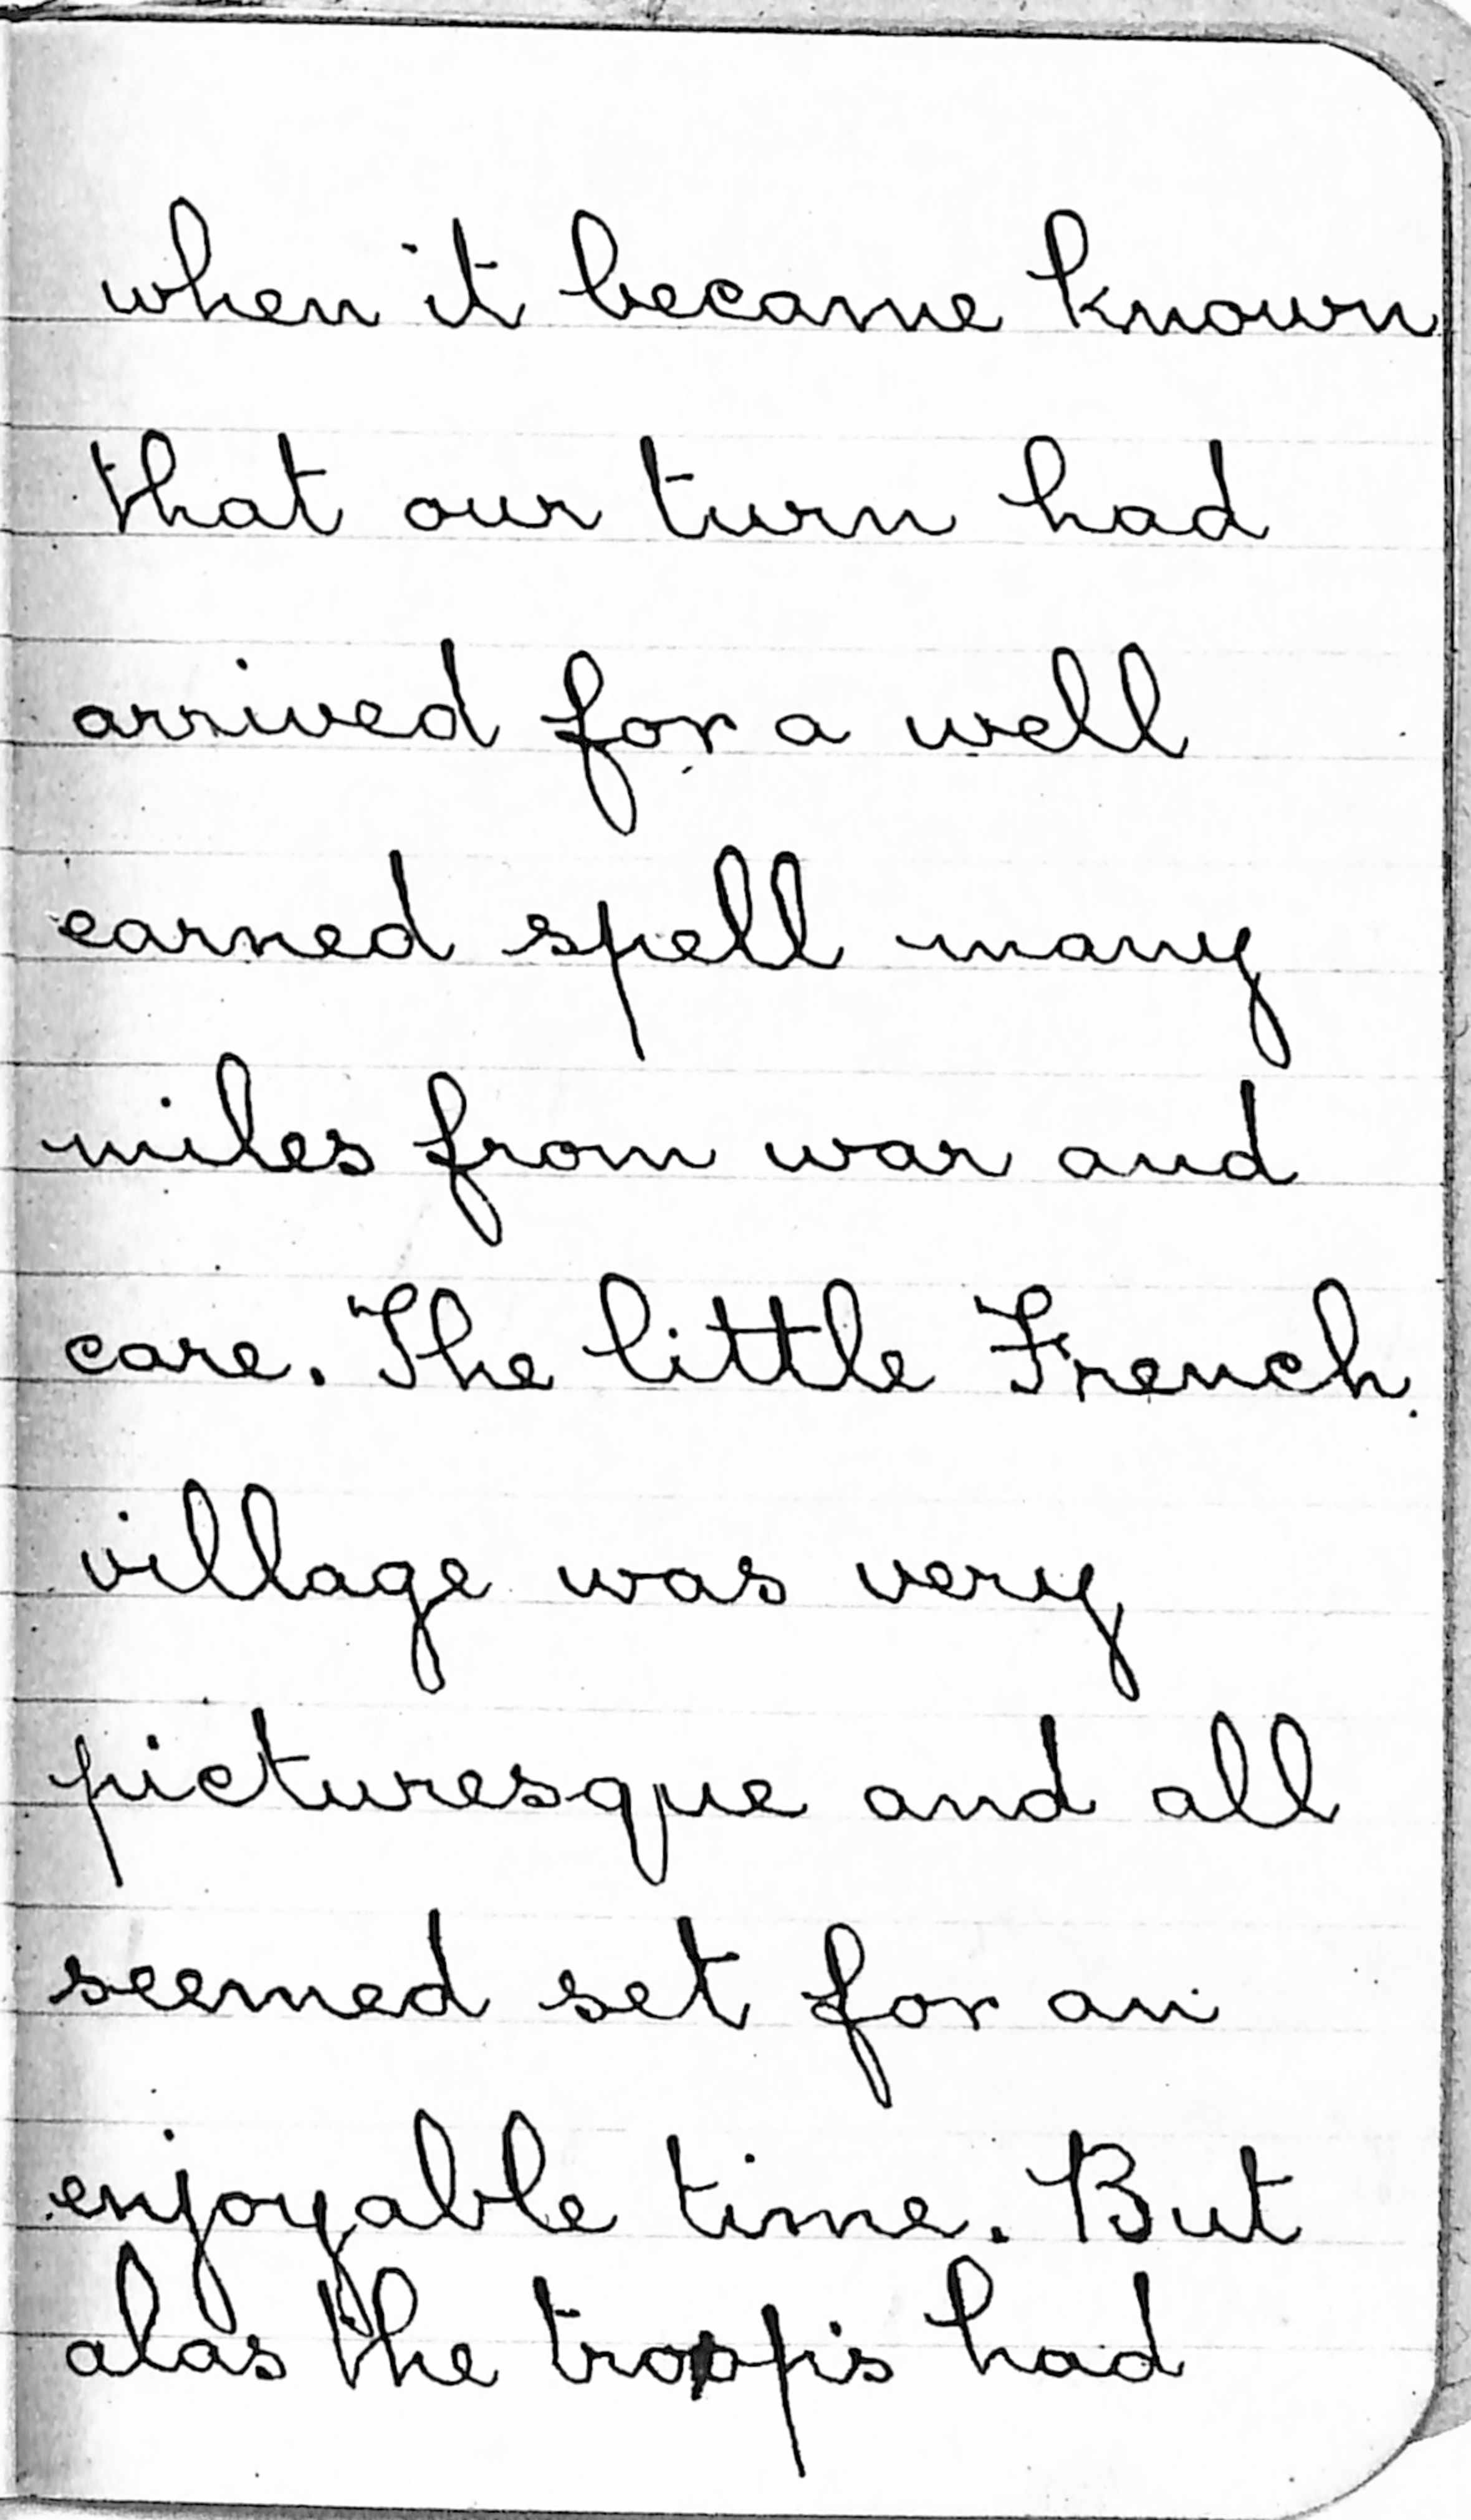 when it became known
that our turn had
arrived for a well
earned spell many
miles from war and
care. The little French
village was very
picturesque and all
seemed set for an
enjoyable time. But
alas the troops had